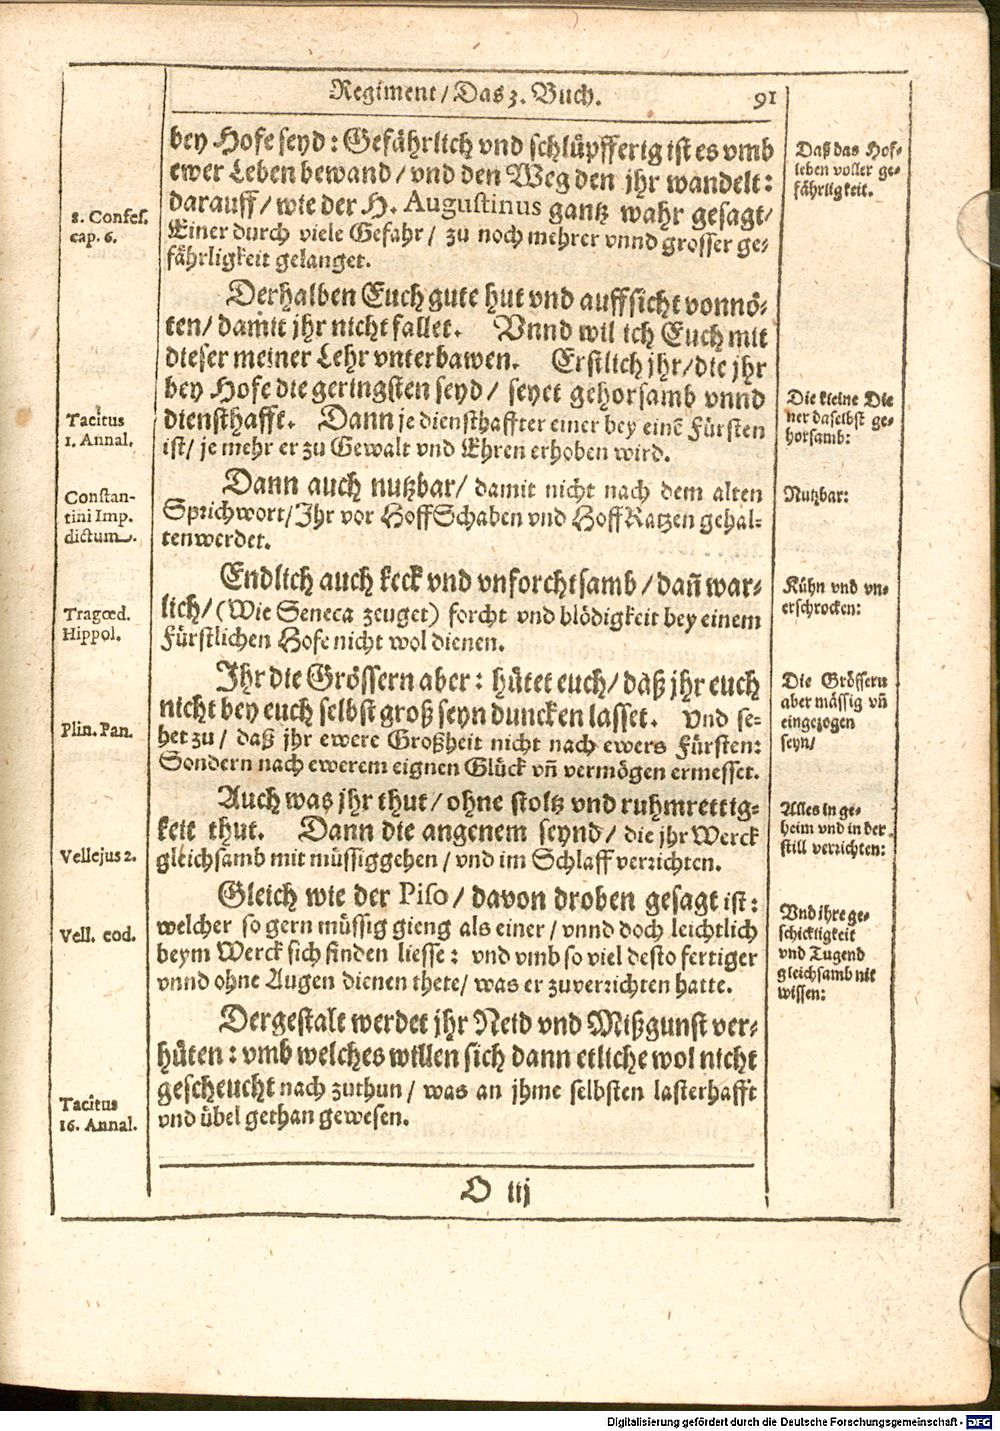 Regiment/ Das 3. Buch. 91
bey Hofe seyd: Gefährlich vnd schlüpfferig ist es vmb
ewer Leben bewand/ vnd den Weg den jhr wandelt:
darauff/ wie der H. Augustinus gantz wahr gesagt/
Einer durch viele Gefahr/ zu noch mehrer vnnd grosser ge-
fährligkeit gelanget.
Daß das Hof-
leben voller ge-
fährligkeit.
8. Confes.
cap. 6.
Derhalben Euch gute hut vnd auffsicht vonnö-
ten/ damit jhr nicht fallet. Vnnd wil ich Euch mit
dieser meiner Lehr vnterbawen. Erstlich jhr/ die jhr
bey Hofe die geringsten seyd/ seyet gehorsamb vnnd
diensthafft. Dann je diensthaffter einer bey einē Fürsten
ist/ je mehr er zu Gewalt vnd Ehren erhoben wird.
Die kleine Die
ner daselbst ge-
horsamb:
Tacitus
1. Annal.
Dann auch nutzbar/ damit nicht nach dem alten
Sprichwort/ Ihr vor HoffSchaben vnd HoffRatzen gehal-
ten werdet.
Nutzbar:
Constan-
tini Imp.
dictum.
Endlich auch keck vnd vnforchtsamb/ dañ war-
lich/ (Wie Seneca zeuget) forcht vnd blödigkeit bey einem
Fürstlichen Hofe nicht wol dienen.
Kühn vnd vn-
erschrocken:
Tragœd.
Hippol.
Ihr die Grössern aber: hütet euch/ daß jhr euch
nicht bey euch selbst groß seyn duncken lasset. Vnd se-
het zu/ daß jhr ewere Großheit nicht nach ewers Fürsten:
Sondern nach ewerem eignen Glück vñ vermögen ermesset.
Die Grössern
aber mässig vñ
eingezogen
seyn/
Plin. Pan.
Auch was jhr thut/ ohne stoltz vnd ruhmrettig-
keit thut. Dann die angenem seynd/ die jhr Werck
gleichsamb mit müssiggehen/ vnd im Schlaff verrichten.
Alles in ge-
heim vnd in der
still verrichten:
Vellejus 2.
Gleich wie der Piso/ davon droben gesagt ist:
welcher so gern müssig gieng als einer/ vnnd doch leichtlich
beym Werck sich finden liesse: vnd vmb so viel desto fertiger
vnnd ohne Augen dienen thete/ was er zuverrichten hatte.
Vnd ihre ge-
schickligkeit
vnd Tugend
gleichsamb nit
wissen:
Vell. eod.
Dergestalt werdet jhr Neid vnd Mißgunst ver-
hüten: vmb welches willen sich dann etliche wol nicht
gescheucht nach zuthun/ was an jhme selbsten lasterhafft
vnd übel gethan gewesen.
Tacitus
16. Annal.
O iij
Digitalisierung gefördert durch die Deutsche Forschungsgemeinschaft - DFG